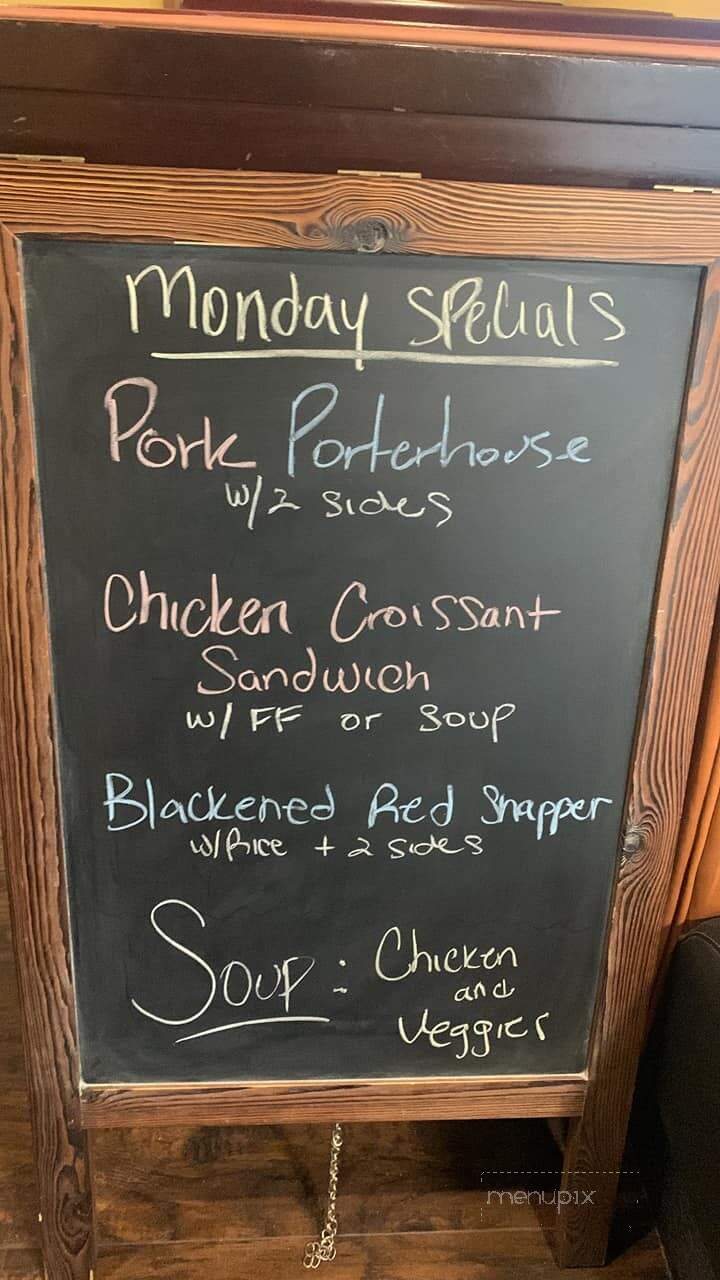 Monday Specials
Pork Porterhouse
w/2 sides
Chicken Croissant
Sandwich
w/ FF or Soup
Blackened Red Snapper
w/Rice + 2 sides
Soup: Chicken
and
Veggies
menupix